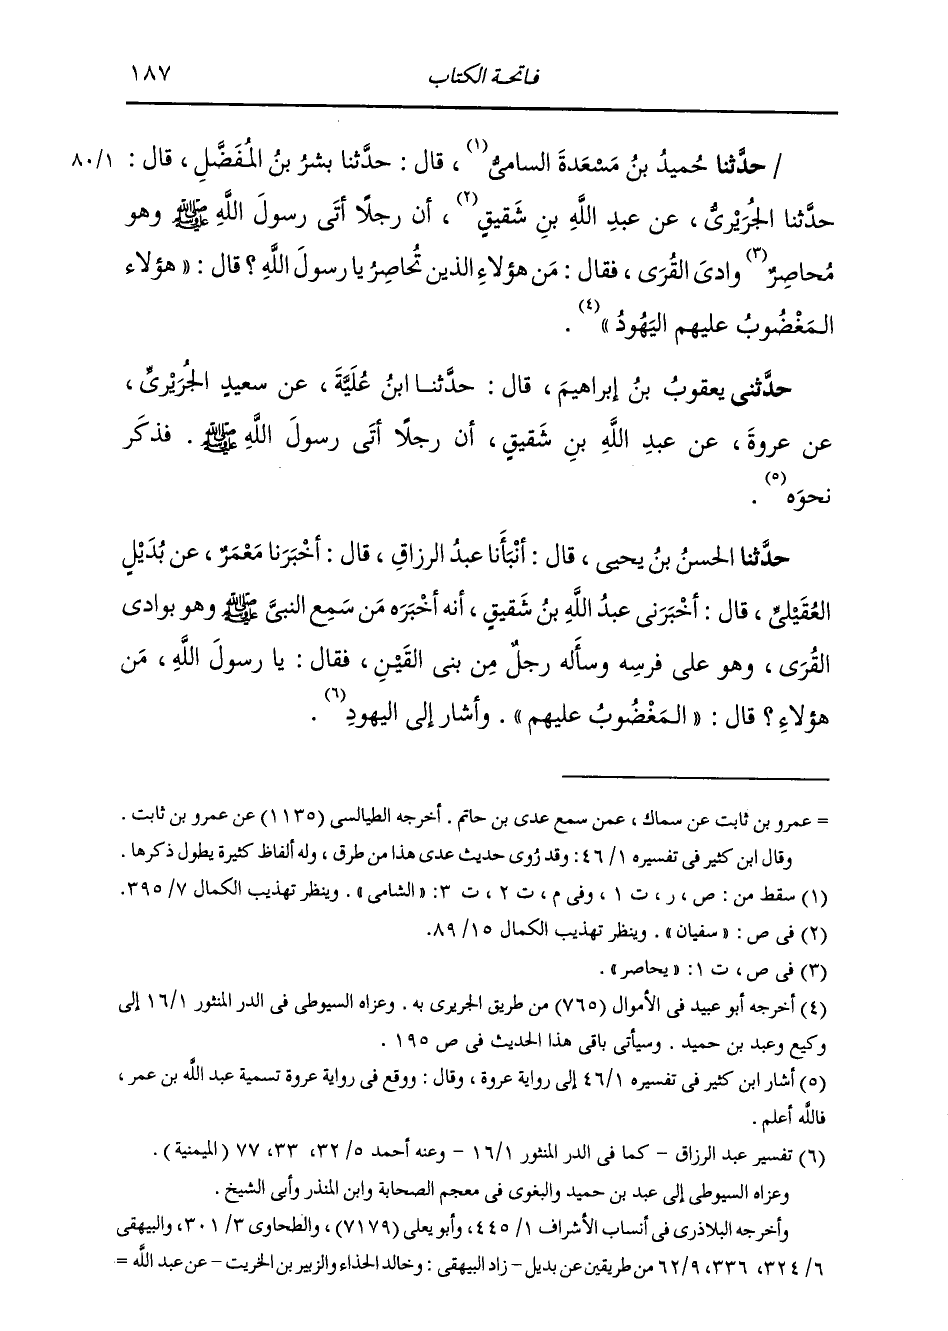 فاتحة الكتاب ١٨٧
/ حدَّثنا حُميدُ بنُ مَسْعَدةَ السامىُّ(١) ، قال : حدَّثنا بشرُ بنُ المُفَضَّلِ ، قال : ٨٠/١
حدَّثنا الجُرَيْرىُّ ، عن عبدِ اللَّهِ بنِ شَقيقٍ(٢) ، أن رجلًا أتَى رسولَ اللَّهِ ﷺ وهو
مُحاصِرٌ(٣) وادىَ القُرَى ، فقال : مَن هؤلاءِ الذين تُحاصِرُ يا رسولَ اللَّهِ ؟ قال : « هؤلاء
المَغْضُوبُ عليهم اليَهُودُ »(٤) .
حدَّثنى يعقوبُ بنُ إبراهيمَ ، قال : حدَّثنا ابنُ عُلَيَّةَ ، عن سعيدٍ الجُرَيْرىِّ ،
عن عروةَ ، عن عبدِ اللَّهِ بنِ شَقيقٍ ، أن رجلًا أتَى رسولَ اللَّهِ ﷺ . فذكَر
نحوَه(٥) .
حدَّثنا الحسنُ بنُ يحيى ، قال : أنْبَأَنا عبدُ الرزاقِ ، قال : أخْبَرَنا مَعْمَرٌ ، عن بُدَيْلٍ
العُقَيْلىِّ ، قال : أخْبَرَنى عبدُ اللَّهِ بنُ شَقيقٍ ، أنه أخْبَرَه مَن سَمِع النبىَّ ﷺ وهو بوادى
القُرَى ، وهو على فرسِه وسأَله رجلٌ مِن بنى القَيْنِ ، فقال : يا رسولَ اللَّهِ ، مَن
هؤلاءِ ؟ قال : « المَغْضُوبُ عليهم » . وأشار إلى اليهودِ(٦) .
= عمرو بن ثابت عن سماك ، عمن سمع عدى بن حاتم . أخرجه الطيالسى (١١٣٥) عن عمرو بن ثابت .
وقال ابن كثير فى تفسيره ١/ ٤٦: وقد رُوى حديث عدى هذا من طرق ، وله ألفاظ كثيرة يطول ذكرها .
(١) سقط من : ص ، ر ، ت ١ ، وفى م ، ت ٢ ، ت ٣: « الشامى » . وينظر تهذيب الكمال ٧/ ٣٩٥.
(٢) فى ص : « سفيان » . وينظر تهذيب الكمال ١٥/ ٨٩.
(٣) فى ص ، ت ١: « يحاصر » .
(٤) أخرجه أبو عبيد فى الأموال (٧٦٥) من طريق الجريرى به . وعزاه السيوطى فى الدر المنثور ١٦/١ إلى
وكيع وعبد بن حميد . وسيأتى باقى هذا الحديث فى ص ١٩٥ .
(٥) أشار ابن كثير فى تفسيره ٤٦/١ إلى رواية عروة ، وقال : ووقع فى رواية عروة تسمية عبد الله بن عمر ،
فاللَّه أعلم .
(٦) تفسير عبد الرزاق – كما فى الدر المنثور ١٦/١ – وعنه أحمد ٥/ ٣٢، ٣٣، ٧٧ (الميمنية) .
وعزاه السيوطى إلى عبد بن حميد والبغوى فى معجم الصحابة وابن المنذر وأبى الشيخ .
وأخرجه البلاذرى فى أنساب الأشراف ١/ ٤٤٥، وأبو يعلى (٧١٧٩) ، والطحاوى ٣/ ٣٠١، والبيهقى
٦/ ٣٢٤، ٣٣٦، ٦٢/٩ من طريقين عن بديل – زاد البيهقى : وخالد الحذاء والزبير بن الخريت – عن عبد اللَّه =